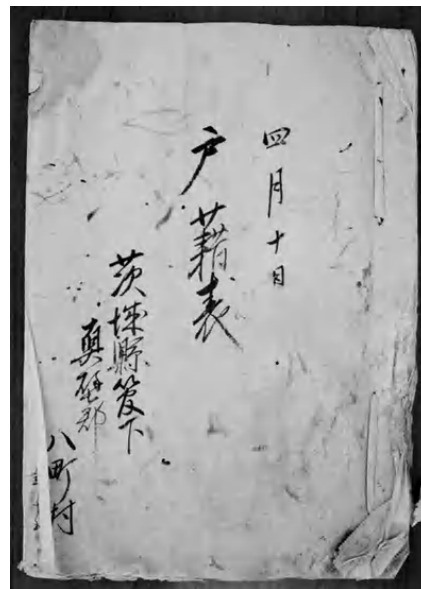 四月十日
戸籍表
茨城縣管下
真壁郡
八町村